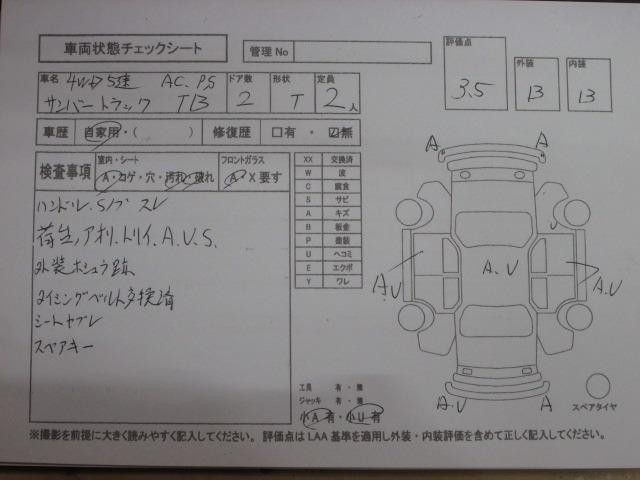 車両状態チェックシート
管理No
評価点
3.5
外装
B
内装
B
車名 4WD 5速 AC. P.S
サンバートラック TB
ドア数
2
形状
T
定員
2人
車歴 自家用・( ) 修復歴 □有・☑無
検査事項
室内・シート
A・コゲ・穴・汚れ・破れ
フロントガラス
A・X要す
ハンドル.Sノブ スレ
荷台.アオリ.トリイ.A.U.S.
外装ホシュウ跡
タイミングベルト交換済
シートヤブレ
スペアキー
XX 交換済
W 波
C 腐食
S サビ
A キズ
B 板金
P 塗装
U ヘコミ
E エクボ
Y ワレ
工具 有・無
ジャッキ 有・無
小A有・小U有
A
A
U
A.U
A.U
A.U
A.U
A
スペアタイヤ
※撮影を前提に大きく読みやすく記入してください。 評価点はLAA基準を適用し外装・内装評価を含めて正しく記入してください。